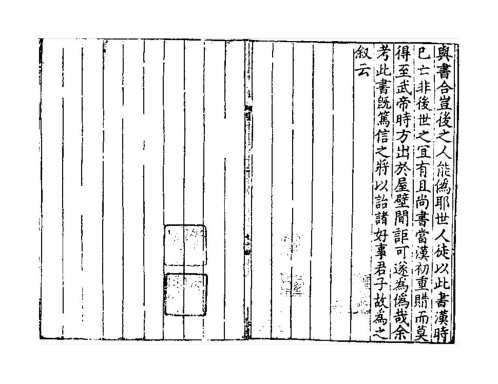 與書合豈後之人能僞耶世人徒以此書漢時
已亡非後世之冝有且尚書當漢初重購而莫
得至武帝時方出於屋壁間詎可遂為僞哉余
考此書旣篤信之將以詒諸好事君子故為之
叙云